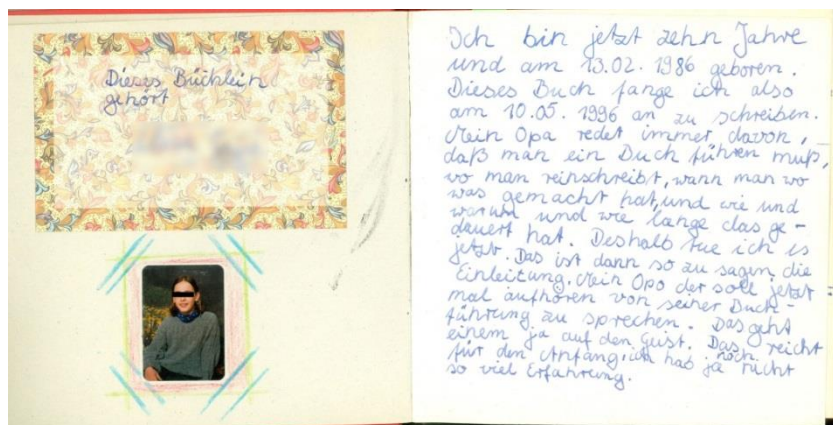 Dieses Büchlein
gehört
Ich bin jetzt zehn Jahre
und am 13.02.1986 geboren.
Dieses Buch fange ich also
am 10.05.1996 an zu schreiben.
Mein Opa redet immer davon,
daß man ein Buch führen muß,
wo man reinschreibt, wann man wo
was gemacht hat, und wie und
warum und wie lange das ge-
dauert hat. Deshalb tue ich es
jetzt. Das ist dann so zu sagen die
Einleitung. Mein Opa der soll jetzt
mal aufhören von seiner Buch-
führung zu sprechen. Das geht
einem ja auf den Geist. Das reicht
für den Anfang, ich hab ja noch nicht
so viel Erfahrung.